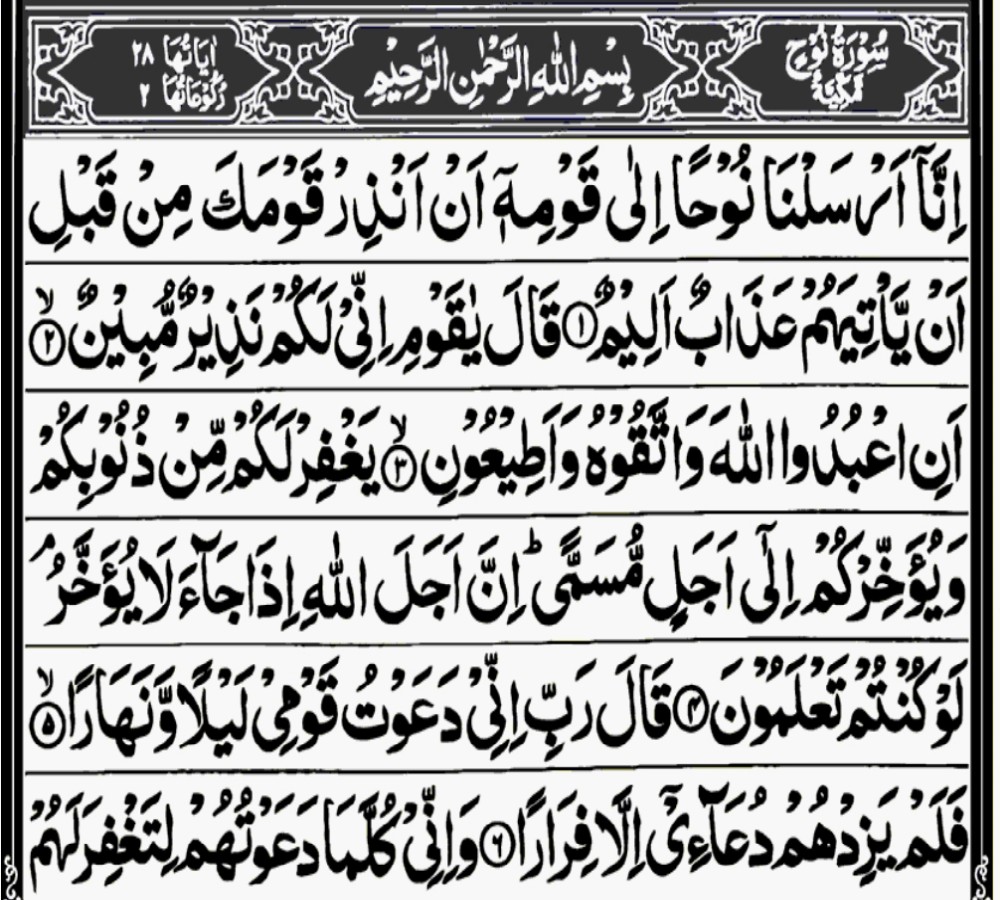 سُوْرَةُ نُوْحٍ مَّكِّيَّةٌ
بِسْمِ اللّٰهِ الرَّحْمٰنِ الرَّحِيْمِ
اٰيَاتُهَا ٢٨
رُكُوْعَاتُهَا ٢
اِنَّآ اَرْسَلْنَا نُوْحًا اِلٰى قَوْمِهٖٓ اَنْ اَنْذِرْ قَوْمَكَ مِنْ قَبْلِ
اَنْ يَّاْتِيَهُمْ عَذَابٌ اَلِيْمٌ ١ قَالَ يٰقَوْمِ اِنِّيْ لَكُمْ نَذِيْرٌ مُّبِيْنٌ ۙ ٢
اَنِ اعْبُدُوا اللّٰهَ وَاتَّقُوْهُ وَاَطِيْعُوْنِ ۙ ٣ يَغْفِرْ لَكُمْ مِّنْ ذُنُوْبِكُمْ
وَيُؤَخِّرْكُمْ اِلٰٓى اَجَلٍ مُّسَمًّى ؕ اِنَّ اَجَلَ اللّٰهِ اِذَا جَآءَ لَا يُؤَخَّرُ ۘ
لَوْ كُنْتُمْ تَعْلَمُوْنَ ٤ قَالَ رَبِّ اِنِّيْ دَعَوْتُ قَوْمِيْ لَيْلًا وَّنَهَارًا ۙ ٥
فَلَمْ يَزِدْهُمْ دُعَآءِيْٓ اِلَّا فِرَارًا ٦ وَاِنِّيْ كُلَّمَا دَعَوْتُهُمْ لِتَغْفِرَ لَهُمْ